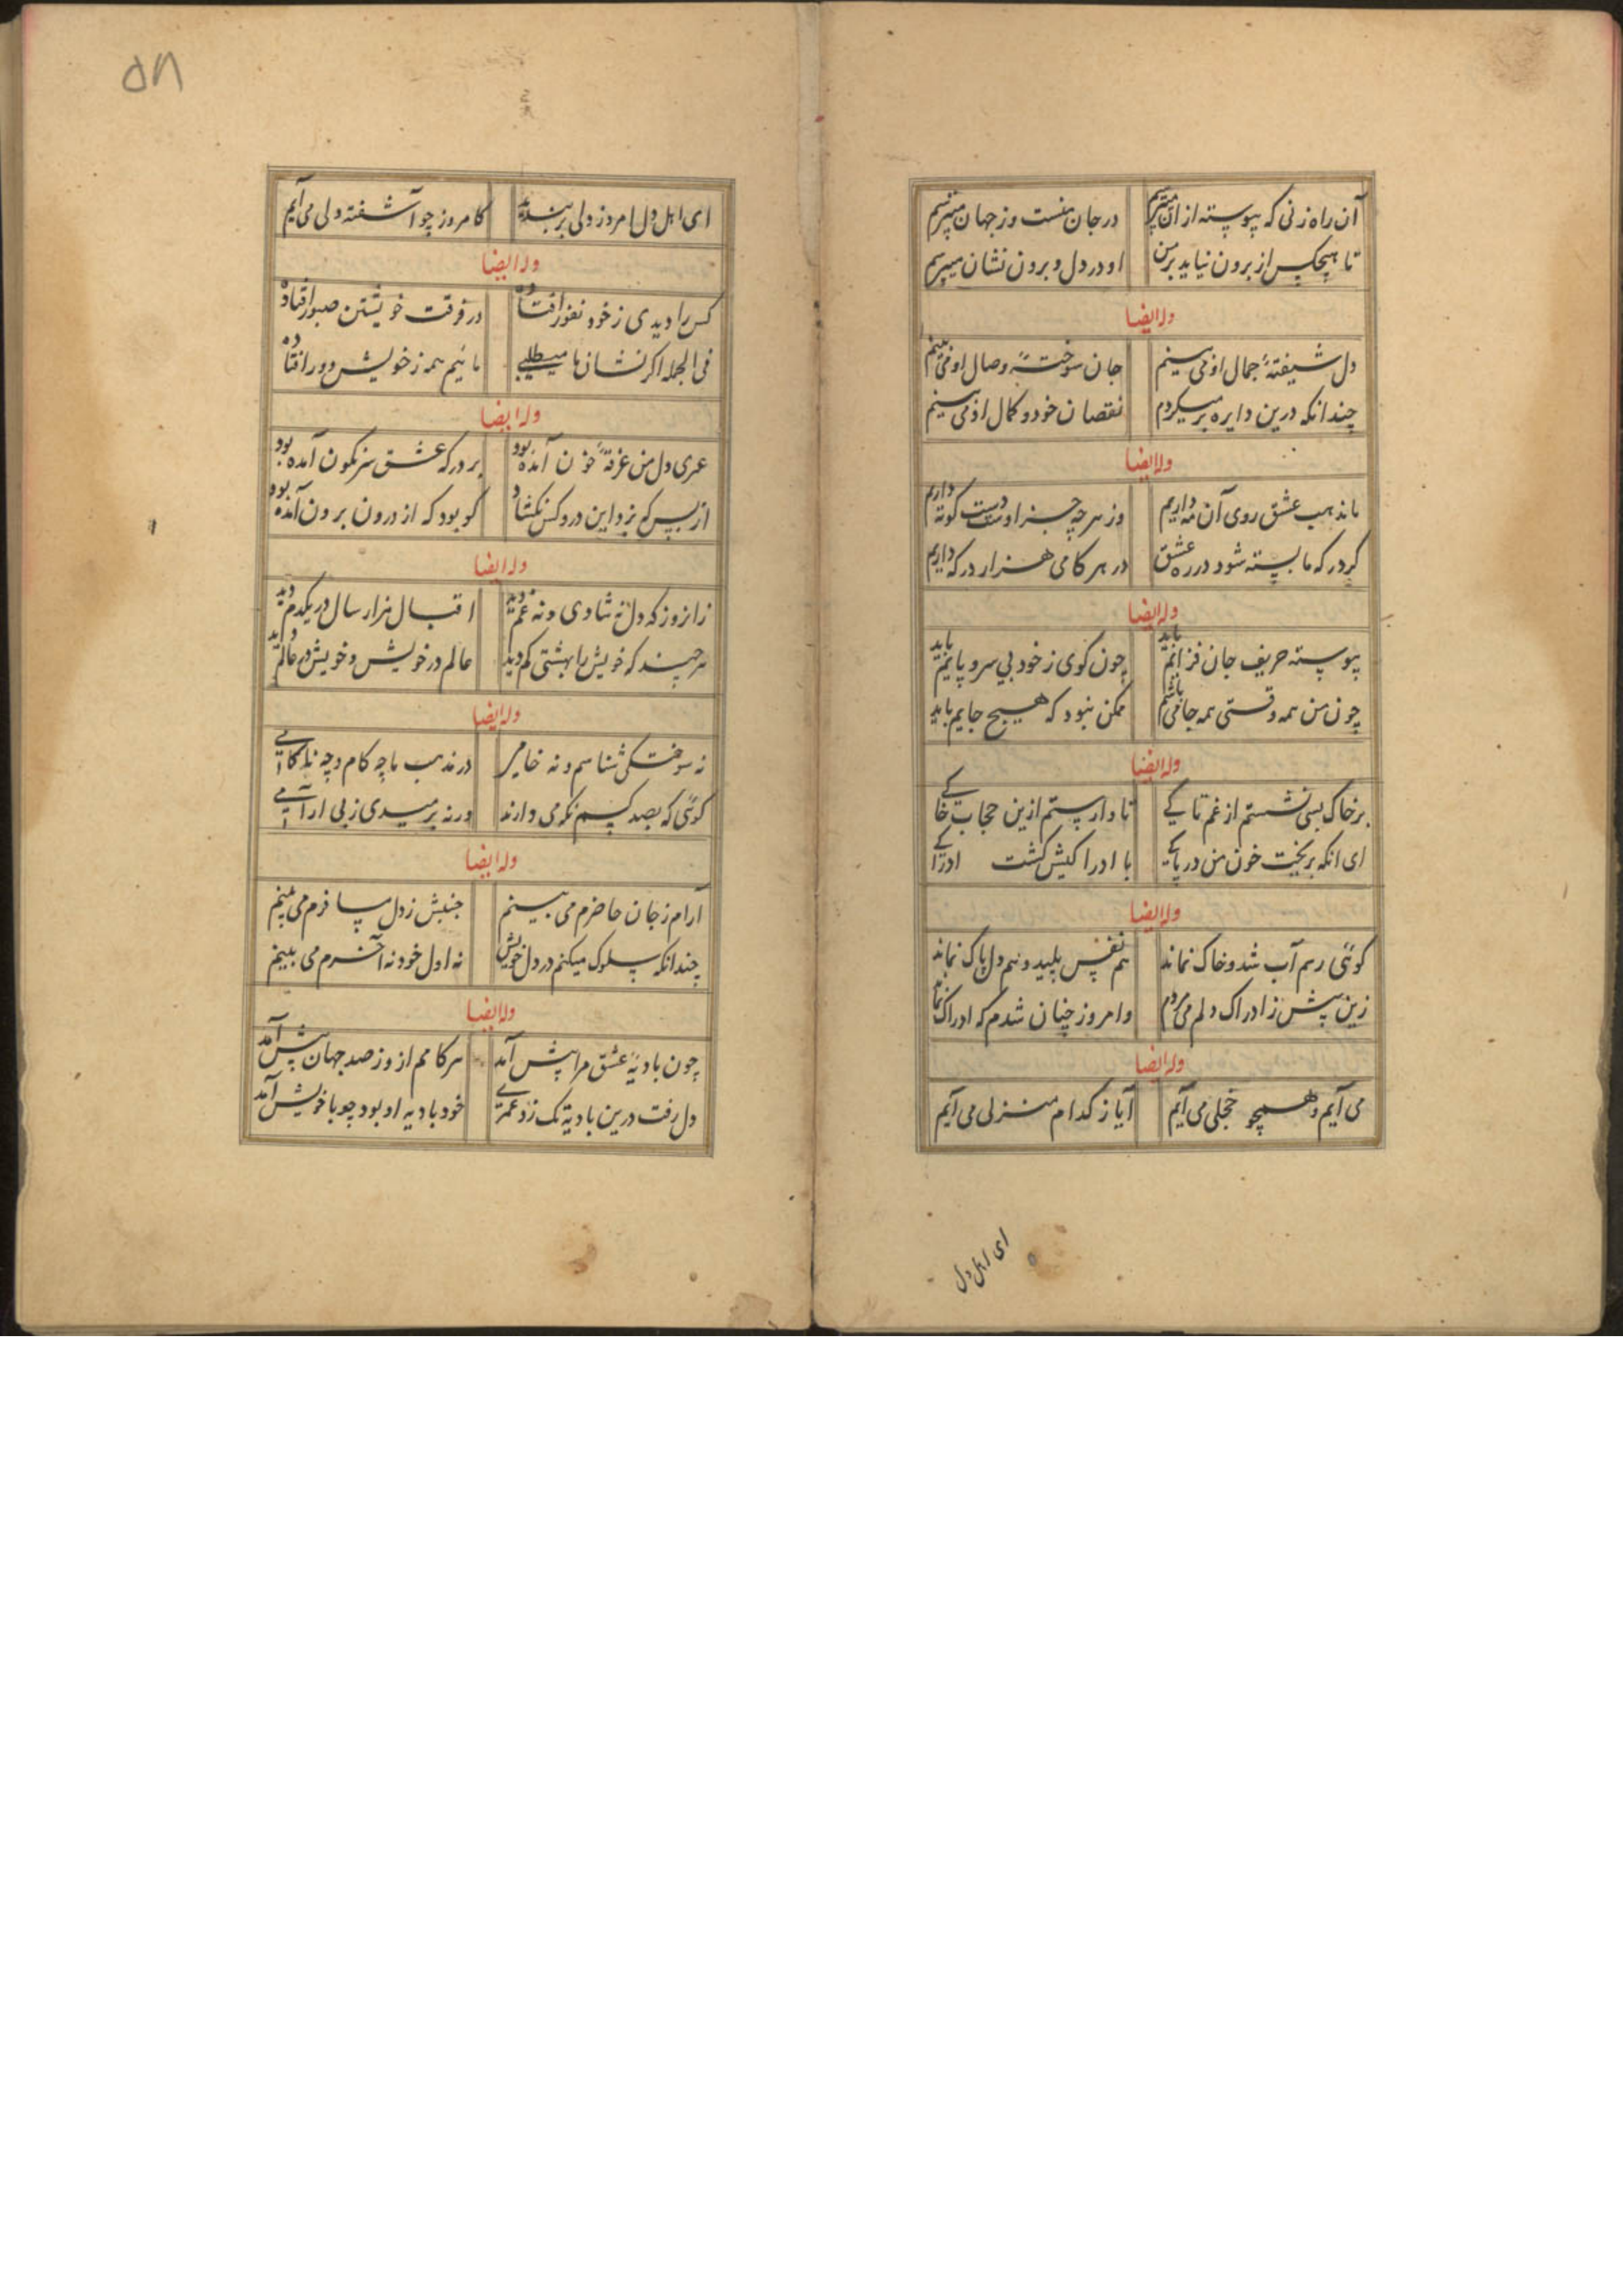 آن راه زنی که پیوسته از ان میترسم در جان منست وز جهان میترسم
تا هیچکس از برون نیاید بر من او در دل و برون نشان میپرسم
وله ایضا
دل شیفتهٔ جمال او می بینم جان سوختهٔ وصال او می بینم
چندانکه درین دایره بر میکردم نقصان خود و کمال او می بینم
وله ایضا
ما مذهب عشق روی آن مه داریم وز هر چه جز اوست دست کوته داریم
کر درکه ما بسته شود در ره عشق در هر کامی هزار درکه داریم
وله ایضا
پیوسته حریف جان فزایم باید چون کوی ز خود بی سر و پایم باید
چون من همه وقتی همه جا می باشم ممکن نبود که هیچ جایم باید
وله ایضا
بر خاک بسی نشستم از غم تا کے تا وا رستم ازین حجاب خاکے
ای انکه بریخت خون من در پاکے با ادراکیش کشت ادراکے
وله ایضا
کوئی رهم آب شد و خاک نماند هم نفس پلید و هم دل پاک نماند
زین پیش ز ادراک دلم می زد دم وامروز چنان شدم که ادراک نماند
وله ایضا
می آیم و همچو خجلی می آیم آیا ز کدام منزلی می آیم
ای اهل دل
۵۸
ای اهل دل امروز دلی بر بندید کامروز چو آشفته دلی می آیم
وله ایضا
کس را دیدی ز خود نفور افتاده در فرقت خویشتن صبور افتاده
فی الجمله اکر نشان ما میطلبے مائیم همه ز خویش دور افتاده
وله ایضا
عمری دل من غرقهٔ خون آمده بود بر درکه عشق سرنکون آمده بود
از بس که بزد این در و کس نکشاد کو بود که از درون برون آمده بود
وله ایضا
زانروز که دل نه شادی و نه غم دید اقبال هزار سال در یکدم دید
هر چند که خویش را بهشتی کم دید عالم در خویش و خویش در عالم دید
وله ایضا
نه سوختکی شناسم و نه خامے در مذهب ما چه کام و چه ناکامے
کوئی که بصد کسم نکه می دارند ورنه برمیدی ز بی ارامے
وله ایضا
آرام ز جان حاضرم می بینم جنبش ز دل مسافرم می بینم
چندانکه سلوک میکنم در دل خویش نه اول خود نه آخرم می بینم
وله ایضا
چون بادیهٔ عشق مرا پیش آمد هر کامم از و ز صد جهان پیش آمد
دل رفت درین بادیه تک زد عمرے خود بادیه او بود چو با خویش آمد